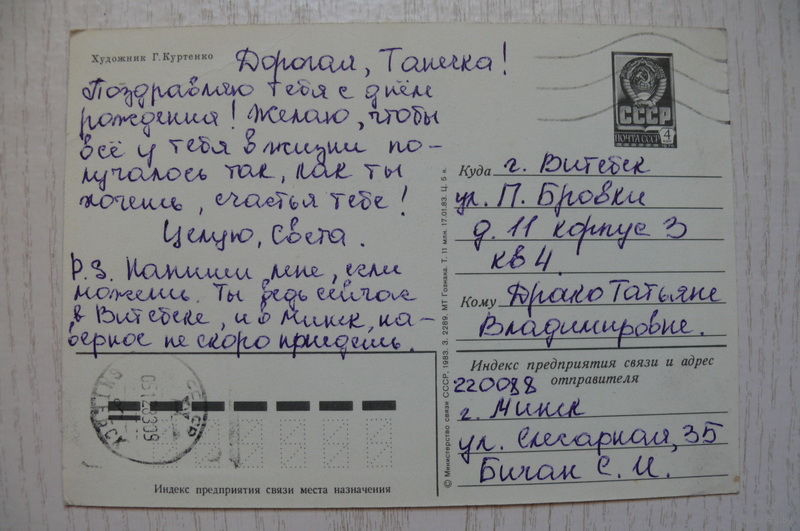 Художник Г. Куртенко
Дорогая, Танечка!
Поздравляю тебя с днём
рождения! Желаю, чтобы
всё у тебя в жизни по-
лучалось так, как ты
хочешь, счастья тебе!
Целую, Света.
P.S. Напиши мне, если
можешь. Ты ведь сейчас
в Витебске, и в Минск, на-
верное не скоро приедешь.
СССР
ПОЧТА СССР 4
Куда г. Витебск
ул. П. Бровки
д. 11 корпус 3
кв 4.
Кому Драко Татьяне
Владимировне.
Индекс предприятия связи и адрес
отправителя
220088
г. Минск
ул. Слесарная, 35
Бичан С. И.
Индекс предприятия связи места назначения
© Министерство связи СССР, 1983. З. 2289. МТ Гознака. Т. 11 млн. 17.01.83. Ц. 5 к.